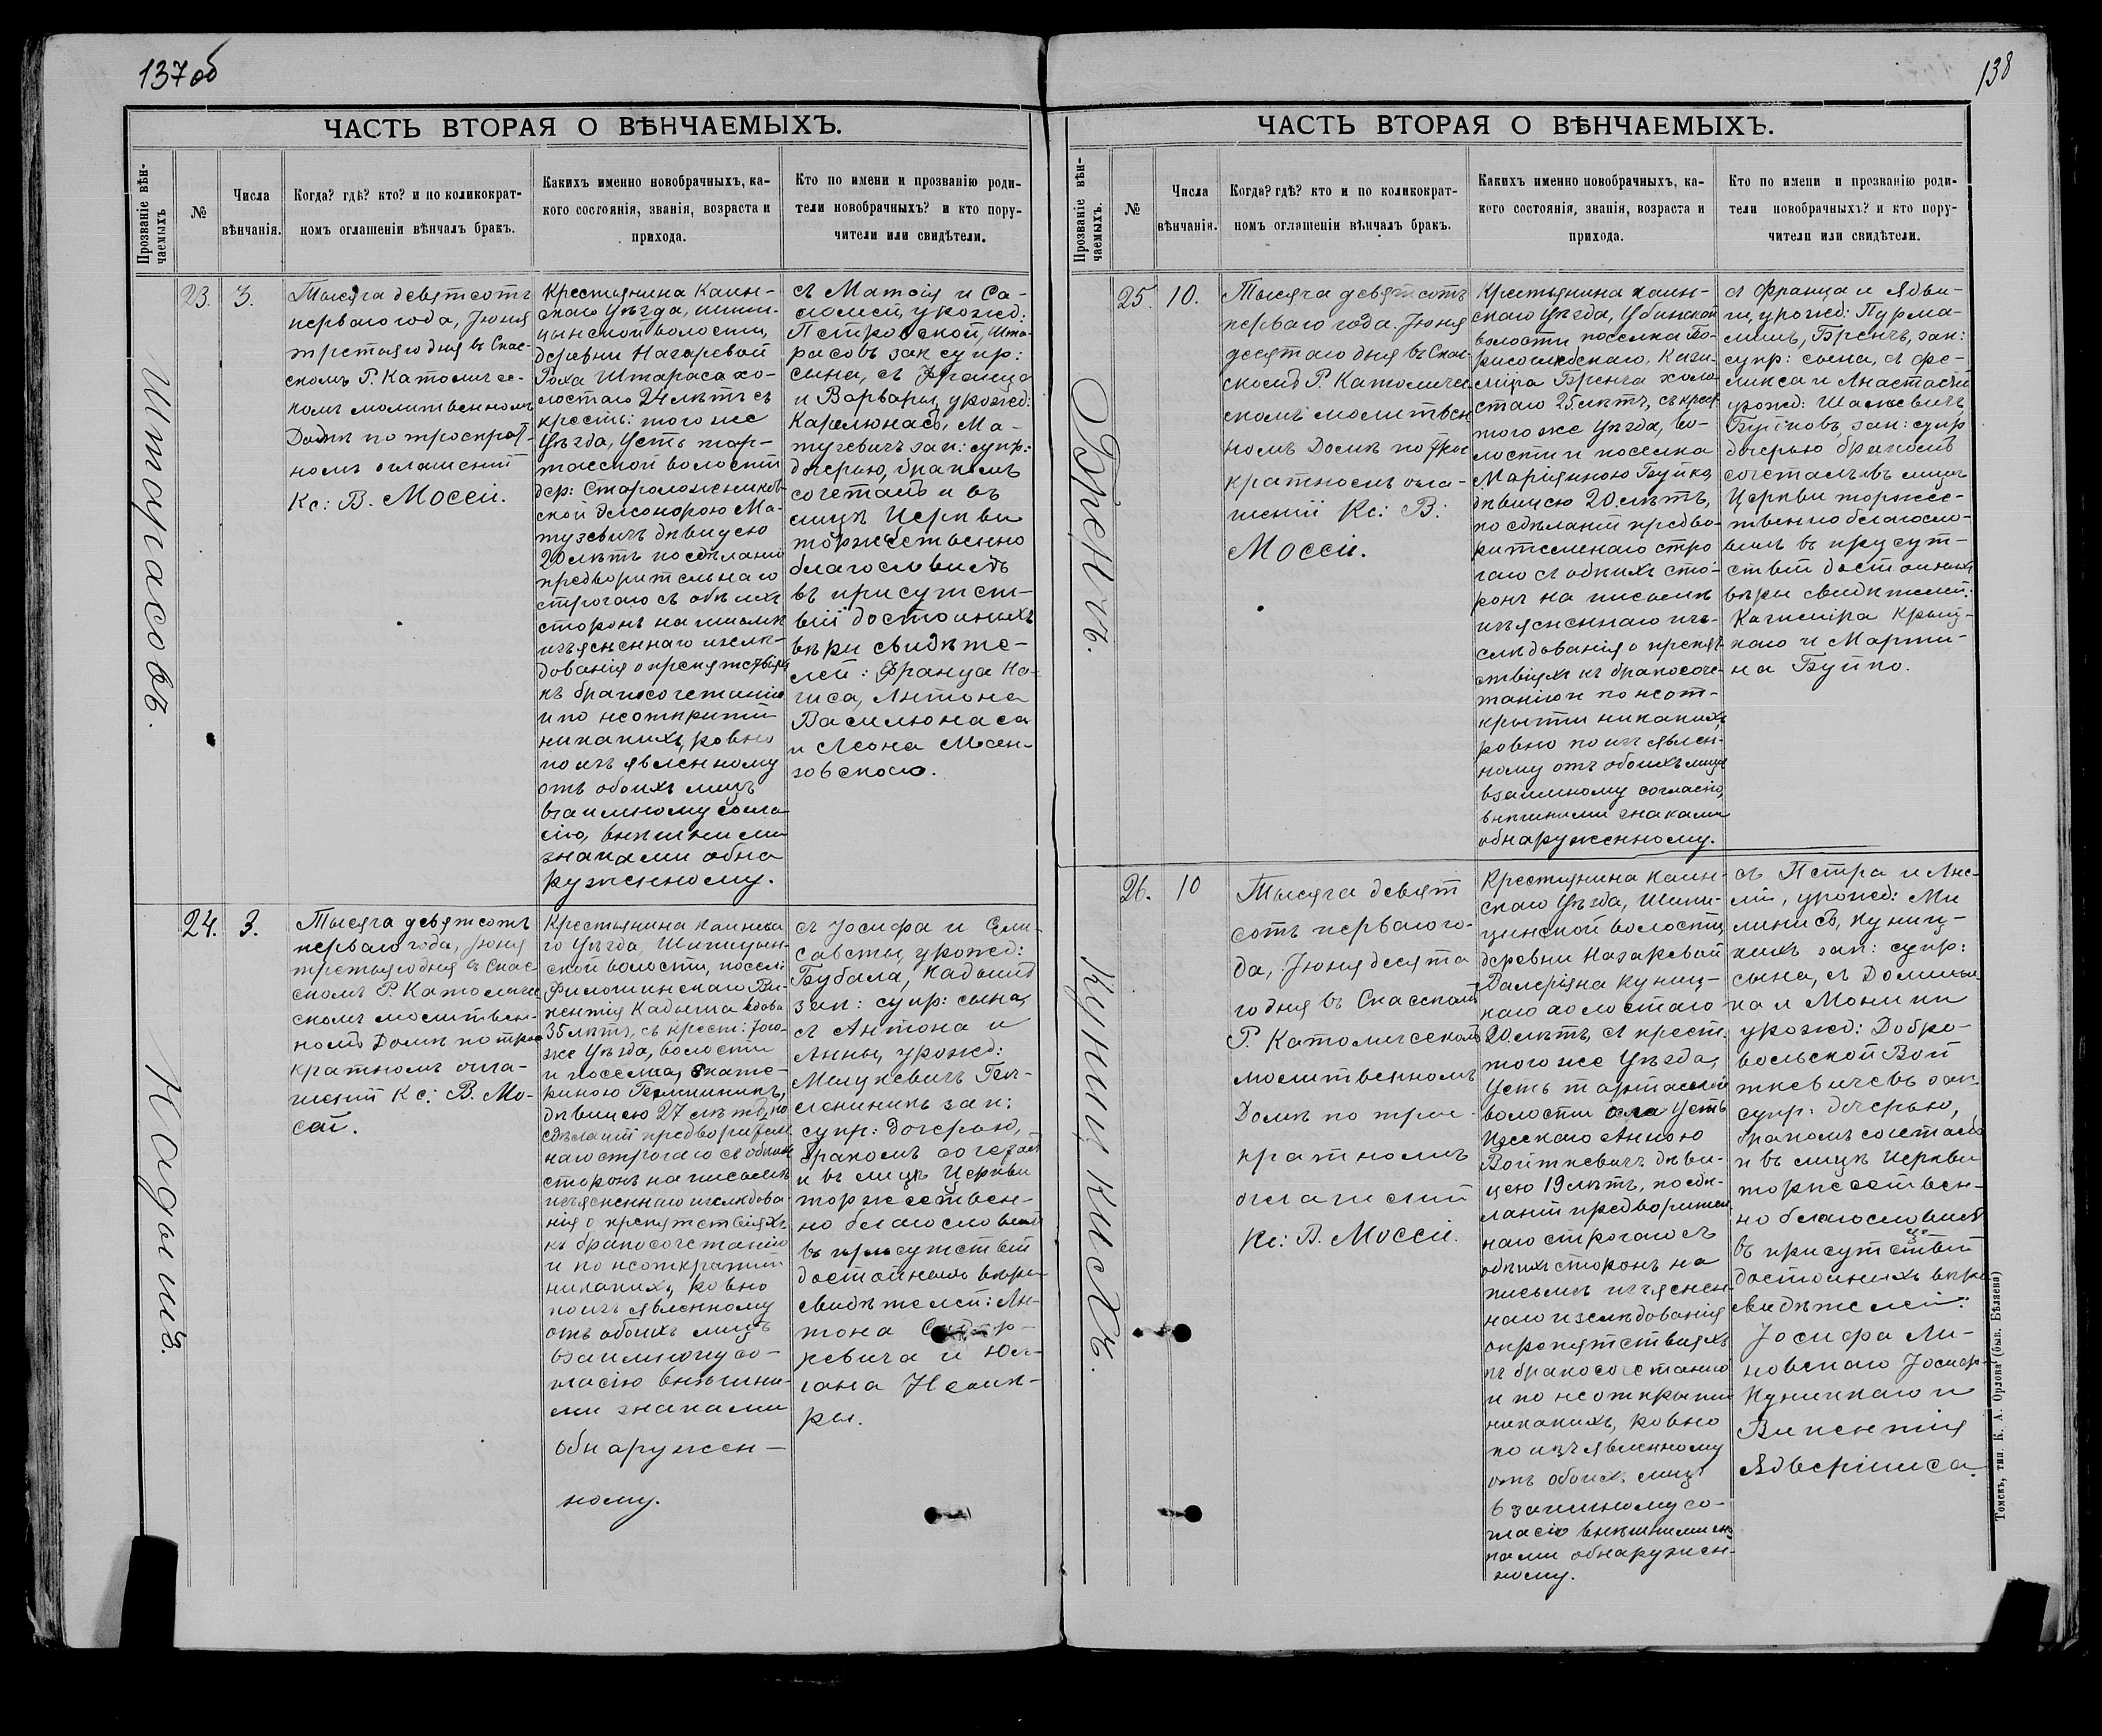 137 об
ЧАСТЬ ВТОРАЯ О ВѢНЧАЕМЫХЪ.
Прозваніе вѣн-
чаемыхъ
№
Числа
вѣнчанія.
Когда? гдѣ? кто? и по коликократ-
номъ оглашеніи вѣнчалъ бракъ.
Какихъ именно новобрачныхъ, ка-
кого состоянія, званія, возраста и
прихода.
Кто по имени и прозванію роди-
тели новобрачныхъ? и кто пору-
чители или свидѣтели.
Штарасовъ.
23.
3.
Тысяча девятсотъ
перваго года, Іюня
третяго дня въ Спас-
скомъ Р. Католичес-
комъ молитвенномъ
Домѣ по троекрат-
номъ оглашеніи
Кс: В. Моссей.
Крестьянина Каин-
скаго Уѣзда, шипи-
цынской волости,
деревни Назаревой
Роха Штараса хо-
лостаго 24 лѣтъ съ
крестъ: того же
Уѣзда, Усть тар-
тасской волости
дер:
Элеонорою Ма-
тузевичъ дѣвицею
20 лѣтъ по сдѣланіи
предворительнаго
строгаго съ обѣихъ
сторонъ на письмѣ
изъясненнаго изслѣ-
дованія о препятствіяхъ
къ бракосочетанію
и по неоткрытіи
никакихъ, ровно
по изъявленному
отъ обоихъ лицъ
взаимному согла-
сію, внѣшними
знаками обна
руженному.
съ Матѳія и Са-
ломеи, урожд:
Петровской, Шта-
расовъ зак супр:
сына, съ Франца
и Варвары, урожд:
Карелюнасъ, Ма-
тузевичъ зак: супр:
дочерью, бракомъ
сочеталъ и въ
лицѣ Церкви
торжественно
благословилъ
въ присутст-
віи достойныхъ
вѣры свидѣте-
лей: Франца
Антона
Василюнаса
и Леона
24.
3.
Кадышъ.
Тысяча девятсотъ
перваго года, Іюня
третьяго дня въ Спас-
скомъ Р. Католиче
скомъ молитвен-
номъ Домѣ по трое
кратномъ огла-
шеніи Кс: В. Мо-
сей.
Крестьянина Каинска
го Уѣзда, Шипицын-
ской волости, посел:
Ви-
кентія Кадыша вдова
35 лѣтъ, съ крест: того-
же Уѣзда, волости
и поселка, Екате-
риною
дѣвицею 27 лѣтъ, по
сдѣланіи предворител
наго строгаго съ обѣихъ
сторонъ на письмѣ
изъясненнаго изслѣдова-
нія о препятствіяхъ
къ бракосочетанію
и по неоткрытіи
никакихъ, ровно
по изъявленному
отъ обоихъ лицъ
взаимному со-
гласію внѣшни-
ми знаками
обнаружен-
ному.
съ Іосифа и Ели-
саветы, урожд:
Бубала, Кадышъ
зак: супр: сына,
съ Антона и
Анны, урожд:
зак:
супр: дочерью,
бракомъ сочеталъ
и въ лицѣ Церкви
торжествен-
но благословилъ
въ присутствіи
достойныхъ вѣры
свидѣтелей: Ан-
тона
и Юл-
іана
138
ЧАСТЬ ВТОРАЯ О ВѢНЧАЕМЫХЪ.
Прозваніе вѣн-
чаемыхъ.
№
Числа
вѣнчанія.
Когда? гдѣ? кто и по коликократ-
номъ оглашеніи вѣнчалъ бракъ.
Какихъ именно новобрачныхъ, ка-
кого состоянія, званія, возраста и
прихода.
Кто по имени и прозванію роди-
тели новобрачныхъ? и кто пору-
чители или свидѣтели.
Бренчъ.
25.
10.
Тысяча девятсотъ
перваго года. Іюня
десятаго дня въ Спас-
скомъ Р. Католиче
скомъ молитвен
номъ Домѣ по трое
кратномъ огла-
шеніи Кс: В:
Моссей.
Крестьянина каин-
скаго Уѣзда, Убинской
волости поселка Бо-
рисоглебскаго, Кази-
міра Бренча холо-
стаго 25 лѣтъ, съ крест
того же Уѣзда, во-
лости и поселка
Маріянною Буйко,
дѣвицею 20 лѣтъ,
по сдѣланіи предво-
рителенаго стро
гаго съ обѣихъ сто-
ронъ на письмѣ
изъясненнаго из-
слѣдованія о препят
ствіяхъ къ бракосоче-
танію и по неот-
крытіи никакихъ,
ровно по изъявлен-
ному отъ обоихъ лицъ
взаимному согласію,
внѣшними знаками
обнаруженному.
съ Франца и Ядви-
ги, урожд: Пурма-
лишъ, Бренчъ, зак:
супр: сына, съ Фе-
ликса и Анастасіи
урожд:
зак: супр
дочерью бракомъ
сочеталъ въ лицѣ
Церкви торжес-
твенно благосло-
вилъ въ присут-
ствіи достойныхъ
вѣры свидѣтелей:
Казиміра
и Марти-
на Буйко.
Куницкихъ.
26.
10
Тысяча девят
сотъ перваго го-
да, Іюня десята
го дня въ Спасскомъ
Р. Католическомъ
молитвенномъ
Домѣ по трое-
кратномъ
оглашеніи
Кс: В. Моссей.
Крестянина Каин-
скаго Уѣзда, Шипи-
цинской волости,
деревни Назаревой
Валеріяна Куниц-
каго холостаго
20 лѣтъ, съ крест.
того же Уѣзда,
Усть тартасской
волости села Усть
Анною
Войткевичъ дѣви-
цею 19 лѣтъ, по сдѣ-
ланіи предворител
наго строгаго съ
обѣихъ сторонъ на
письмѣ изъяснен-
наго изслѣдованія
о препятствіяхъ
къ бракосочетанію
и по неоткрытіи
никакихъ, ровно
по изъявленному
отъ обоих. лицъ
взаимному со-
гласію внѣшними зна
ками обнаружен-
ному.
съ Петра и
урожд:
Куниц-
кихъ зак: супр:
сына, съ Доминика
и Моники
урожд: Добро-
вольской Вой
ткевичевъ зак
супр: дочерью,
бракомъ сочеталъ
и въ лицѣ Церкви
торжествен-
но благословилъ
въ присутствіи
достойныхъ вѣры
свидѣтелей:
Іосифа Ли-
новскаго Іосиф-
Куницкаго и
Викентія
Томскъ, тип. К. А. Орлова (быв. Бѣляева)